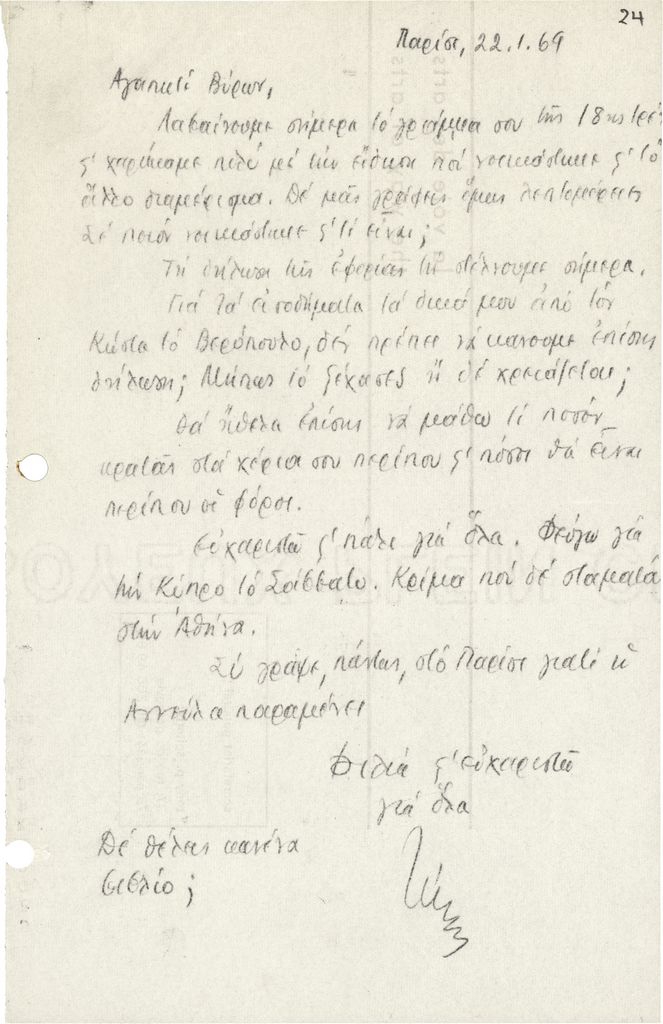 24
Παρίσι, 22.1.69
Αγαπητέ Βύρων,
Λαβαίνουμε σήμερα τό γράμμα σου τῆς 18ης τρέχ
ϛ' χαρήκαμε πολύ μέ τήν εἴδηση πού νοικιάστηκε ϛ' τό
ἄλλο διαμέρισμα. Δέ μᾶς γράφεις ὅμως λεπτομέρειες
Σέ ποιόν νοικιάστηκε ϛ' τί εἶναι;
Τή δήλωση τῆς ἐφορίας τή στέλνουμε σήμερα.
Γιά τά εἰσοδήματα τά δικά μου ἀπό τόν
Κώστα τό Βερόπουλο, δέν πρέπει νά κάνουμε ἐπίσης
δήλωση; Μήπως τό ξέχασες ἤ δέ χρειάζεται;
Θά ἤθελα ἐπίσης νά μάθω τί ποσόν
κρατᾶς στά χέρια σου περίπου ϛ' πόσοι θά εἶναι
περίπου οἱ φόροι.
Εὐχαριστῶ ϛ' πάλι γιά ὅλα. Φεύγω γιά
τήν Κύπρο τό Σάββατο. Κρίμα πού δέ σταματᾶ
στήν Ἀθήνα.
Σύ γράψε, πάντως, στό Παρίσι γιατί ἡ
παραμένει
Φιλιά ϛ' εὐχαριστῶ
γιά ὅλα
Δέ θέλεις κανένα
βιβλίο;